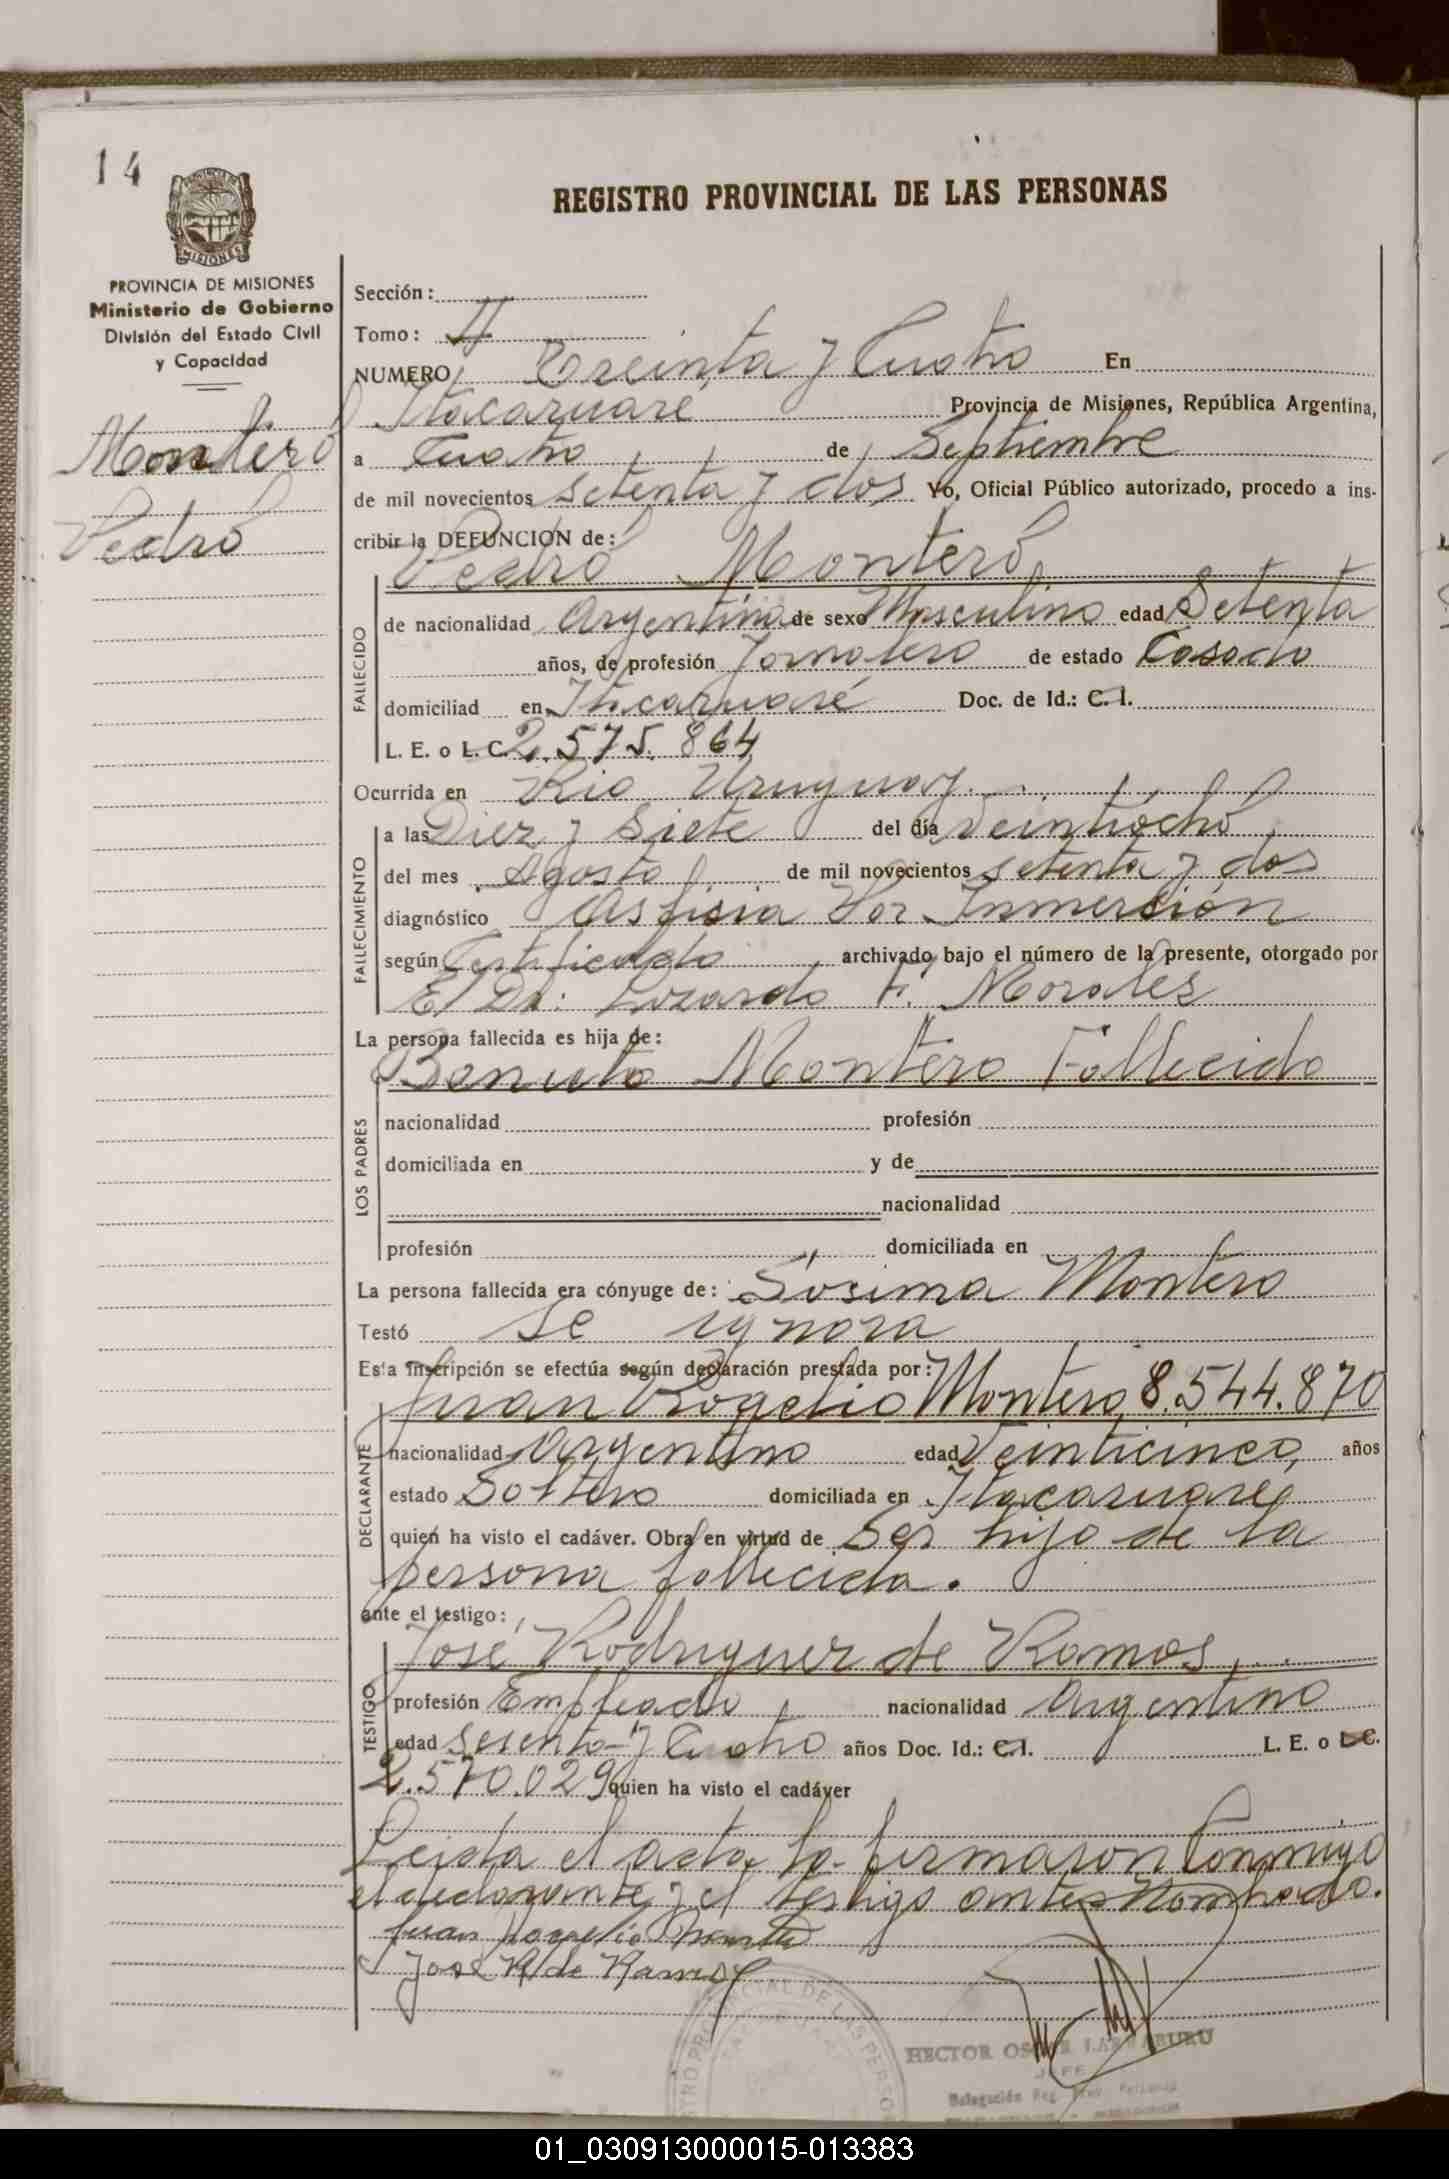 14
REGISTRO PROVINCIAL DE LAS PERSONAS
PROVINCIA DE MISIONES
Ministerio de Gobierno
División del Estado Civil
y Capacidad
Montero
Pedro
Sección:
Tomo: II
NUMERO Treinta y Cuatro En
Itacaruare Provincia de Misiones, República Argentina,
a Cuatro de Septiembre
de mil novecientos setenta y dos Yo, Oficial Público autorizado, procedo a ins-
cribir la DEFUNCION de:
Pedro Montero
FALLECIDO
de nacionalidad Argentina de sexo Masculino edad Setenta
años, de profesión Jornalero de estado Casado
domiciliad en Itacaruaré Doc. de Id.: C. I.
L. E. o L. C. 2.575.864
Ocurrida en Rio Uruguay
FALLECIMIENTO
a las Diez y Siete del día Veintiocho
del mes Agosto de mil novecientos setenta y dos
diagnóstico Asfixia Por Inmersión
según Certificado archivado bajo el número de la presente, otorgado por
El Dr: Lozardo F. Morales
La persona fallecida es hija de:
Montero Fallecido
LOS PADRES
nacionalidad profesión
domiciliada en y de
nacionalidad
profesión domiciliada en
La persona fallecida era cónyuge de: Sósima Montero
Testó se ignora
Esta inscripción se efectúa según declaración prestada por:
Juan Rogelio Montero 8.544.870
DECLARANTE
nacionalidad Argentino edad Veinticinco, años
estado Soltero domiciliada en Itacaruare
quien ha visto el cadáver. Obra en virtud de Ser hijo de la
persona fallecida.
ante el testigo:
José Rodriguez de Ramos
TESTIGO
profesión Empleado nacionalidad Argentino
edad sesenta y Cuatro años Doc. Id.: C.I. L. E. o L.C.
2.570.029 quien ha visto el cadáver
Leida el acta la firmaron Conmigo
el declarante y el testigo antes Nombrado.
Juan Rogelio Montero
José R de Ramos
HECTOR OSCAR LARRABURU
JEFE
Delegación Reg. Prov. Personas
01_030913000015-013383